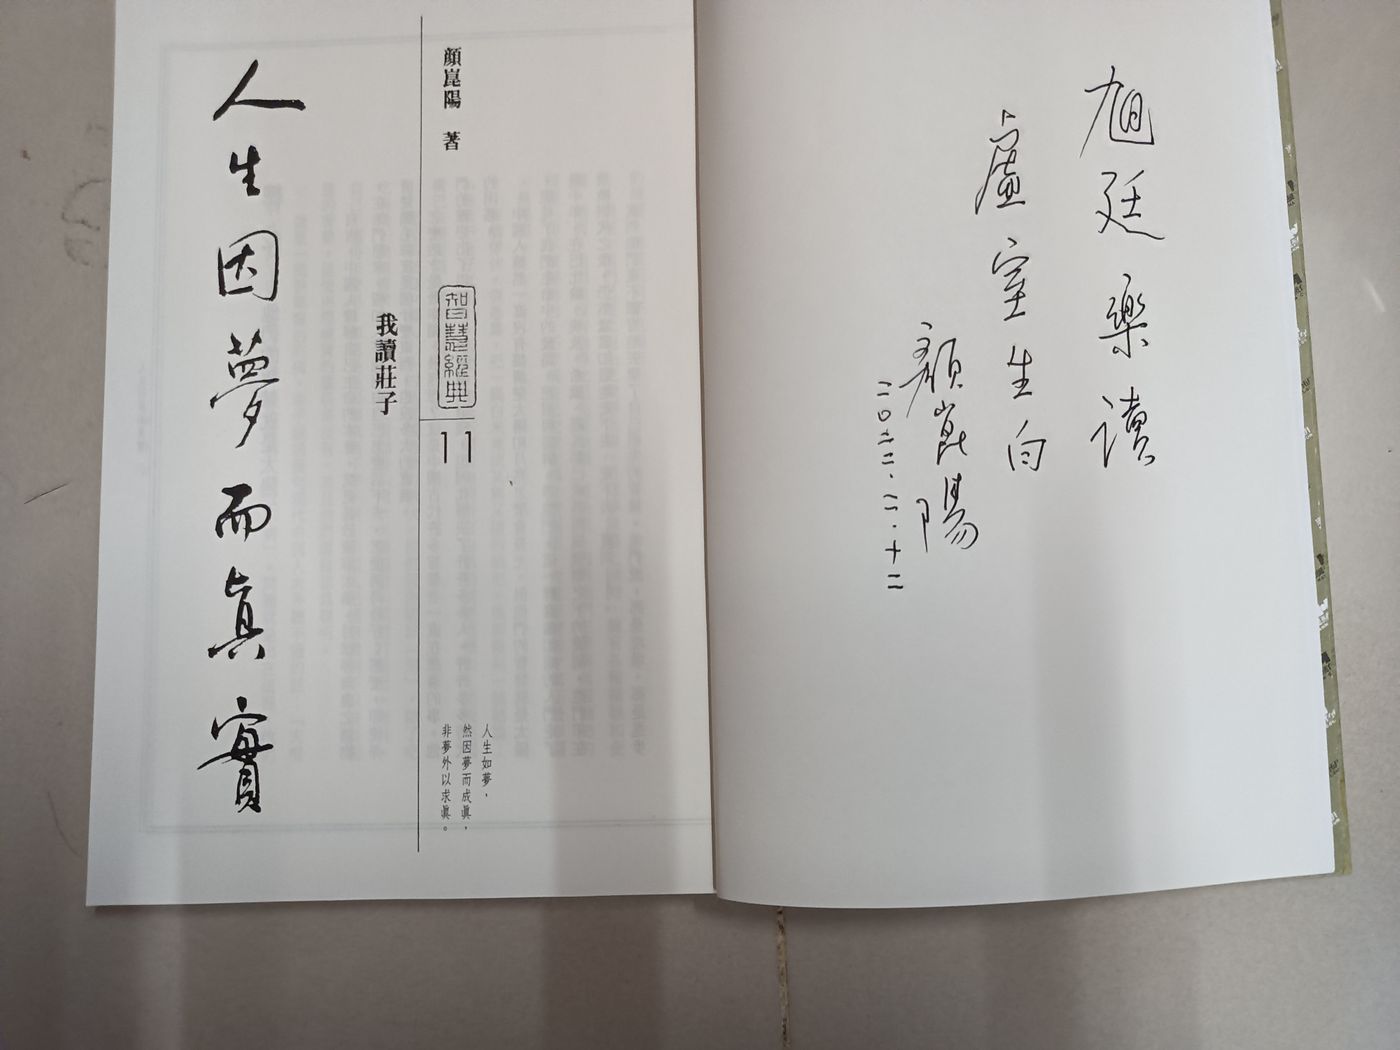 旭廷樂讀
虛室生白
顏崑陽
二〇二二.二.十二
人生如夢，
然因夢而成眞，
非夢外以求眞。
顏崑陽 著
智慧經典
11
我讀莊子
人生因夢而眞實